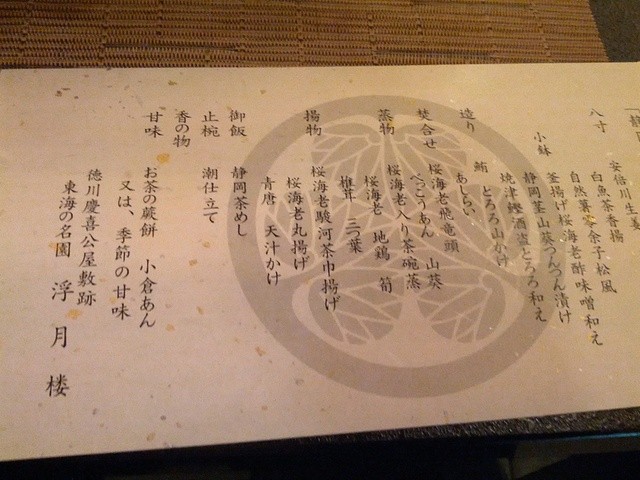 八寸
安倍川生姜
白魚茶香揚
自然薯零余子松風
釜揚げ桜海老酢味噌和え
静岡茎山葵つんつん漬け
小鉢
焼津鰹酒盗とろろ和え
造り
鮪 とろろ山かけ
あしらい
焚合せ
桜海老飛竜頭
べっこうあん 山葵
蒸物
桜海老入り茶碗蒸
桜海老 地鶏 筍
椎茸 三つ葉
揚物
桜海老駿河茶巾揚げ
桜海老丸揚げ
青唐 天汁かけ
御飯
静岡茶めし
止椀
潮仕立て
香の物
甘味
お茶の蕨餅 小倉あん
又は、季節の甘味
徳川慶喜公屋敷跡
東海の名園 浮月楼